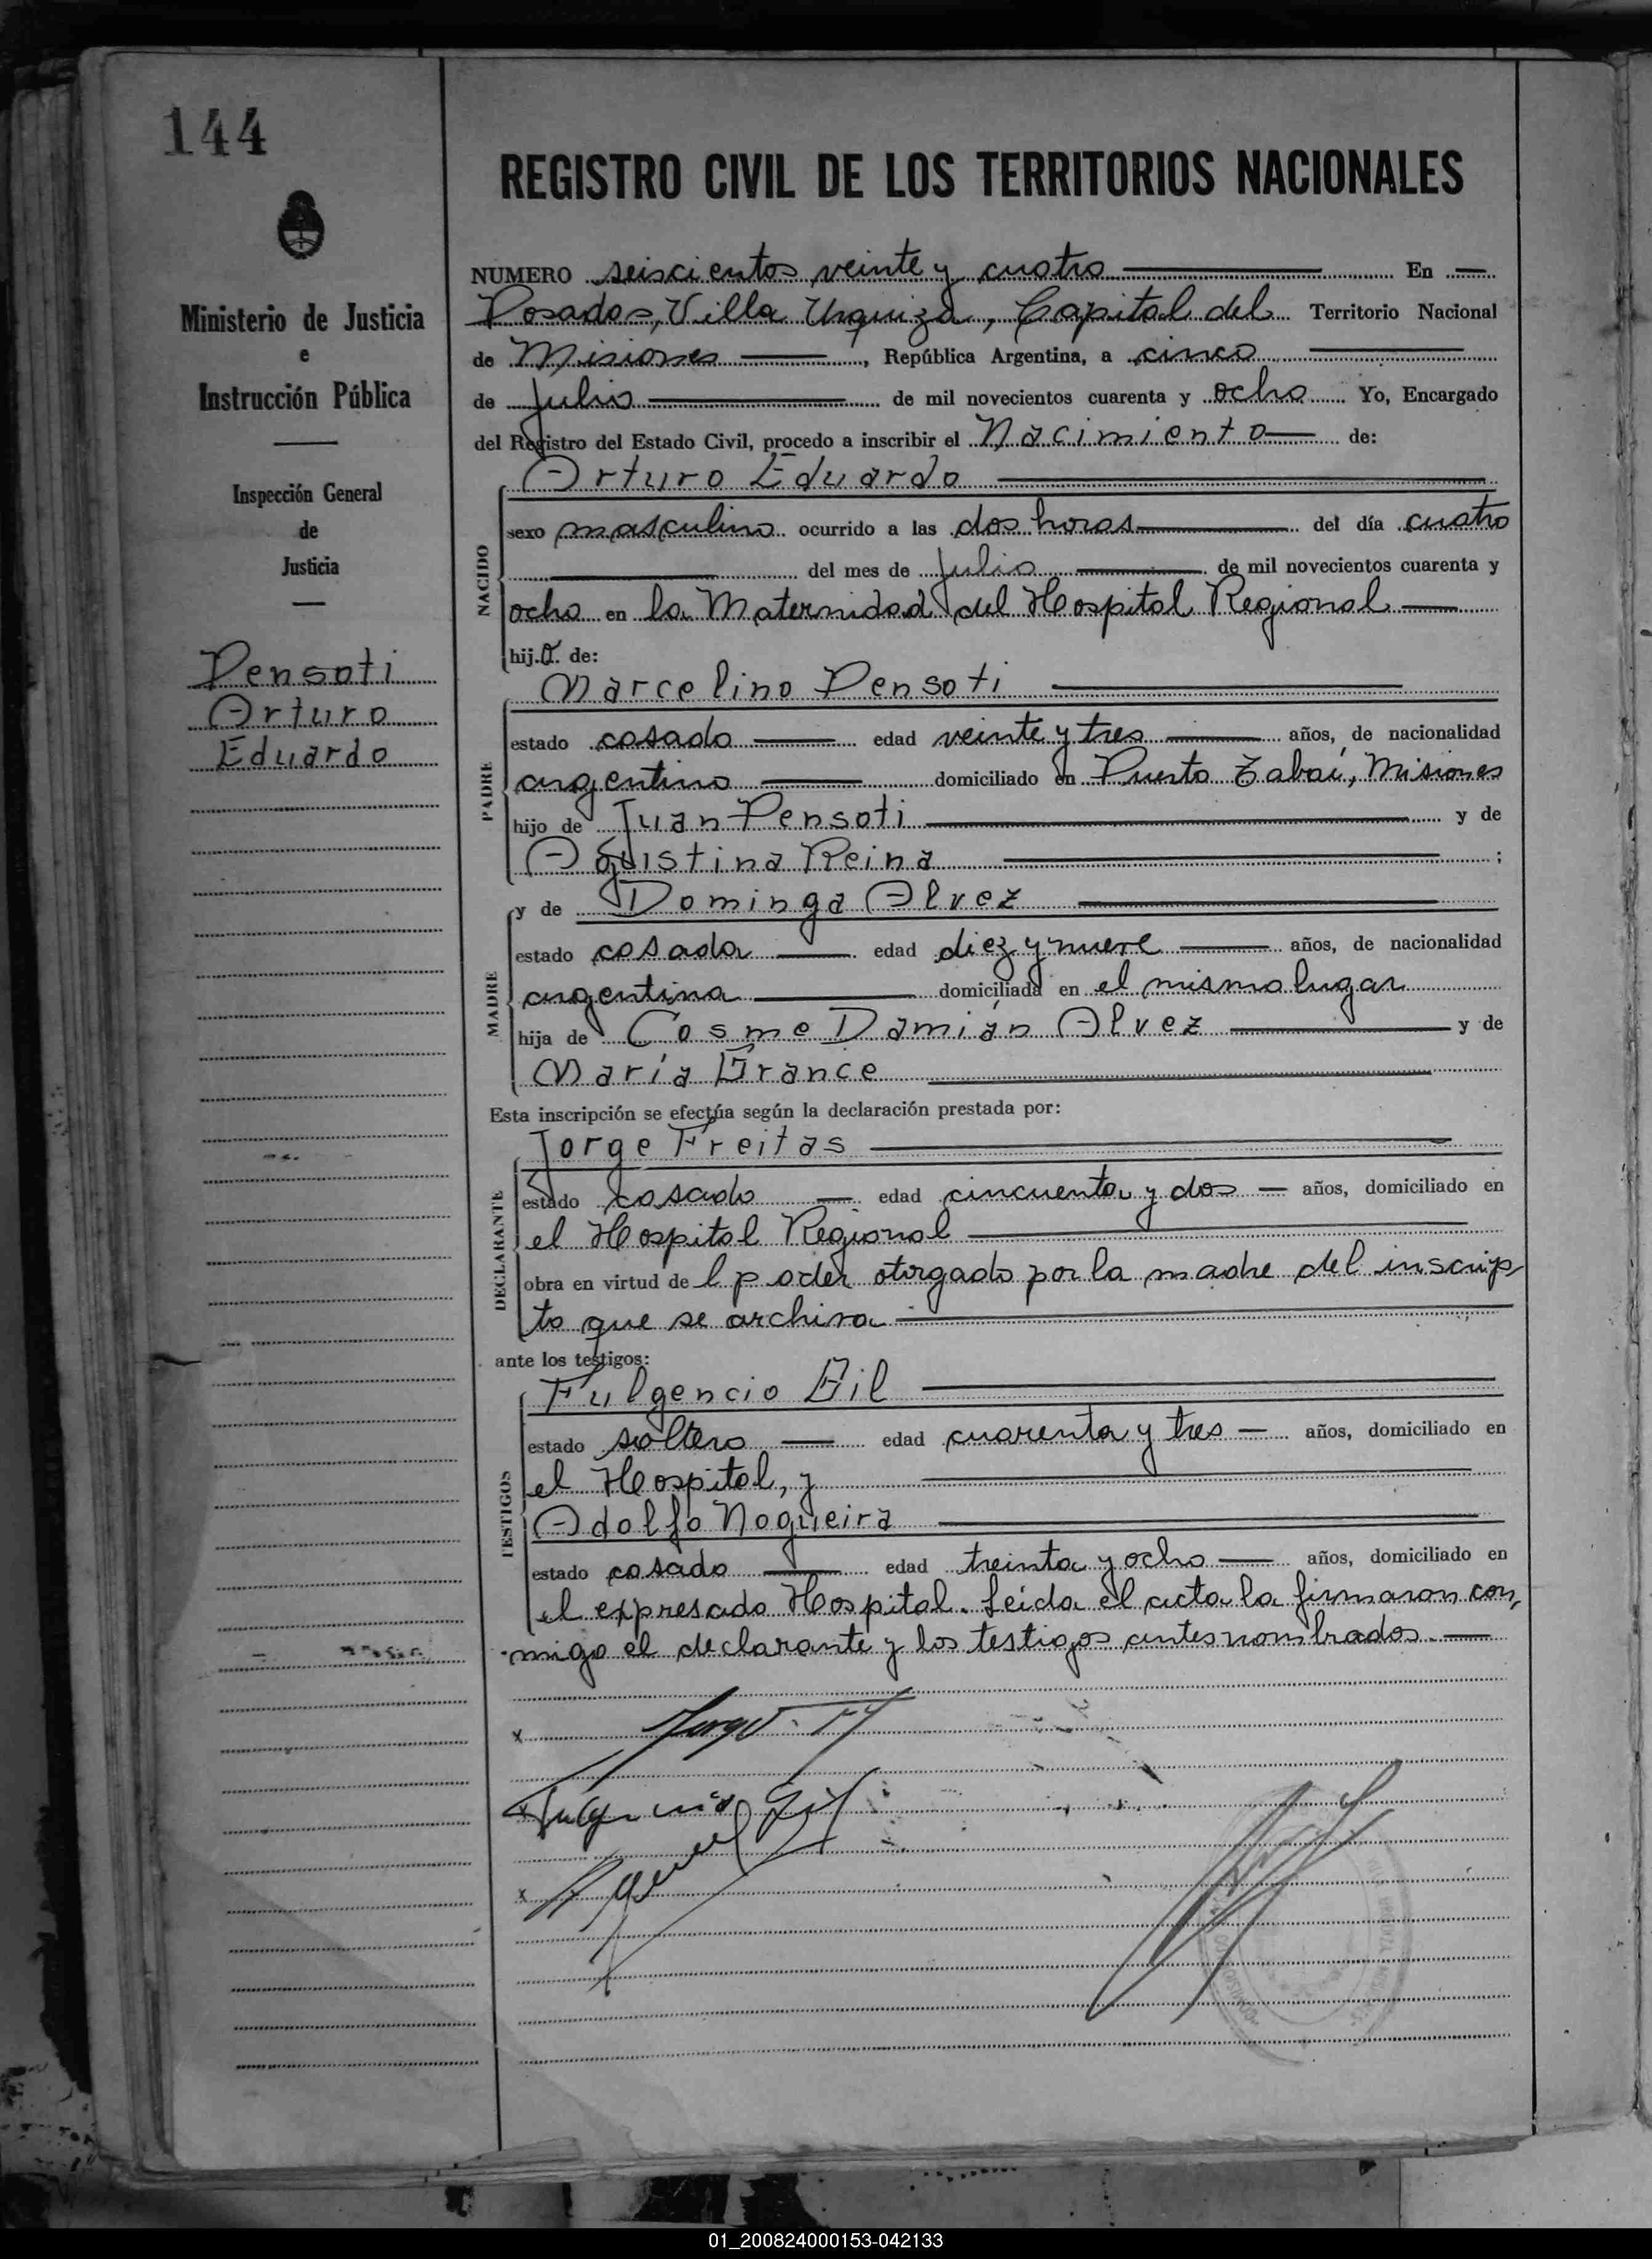 144
REGISTRO CIVIL DE LOS TERRITORIOS NACIONALES
Ministerio de Justicia
e
Instrucción Pública
Inspección General
de
Justicia
Pensoti
Arturo
Eduardo
NUMERO seiscientos veinte y cuatro En
Posadas, Villa Urquiza, Capital del Territorio Nacional
de Misiones, República Argentina, a cinco
de Julio de mil novecientos cuarenta y ocho Yo, Encargado
del Registro del Estado Civil, procedo a inscribir el Nacimiento de:
Arturo Eduardo
NACIDO
sexo masculino ocurrido a las dos horas del día cuatro
del mes de Julio de mil novecientos cuarenta y
ocho en la Maternidad del Hospital Regional
hijo de:
Marcelino Pensoti
PADRE
estado casado edad veinte y tres años, de nacionalidad
argentino domiciliado en Puerto Tabaí, Misiones
hijo de Juan Pensoti y de
Agustina Reina ;
y de Dominga Alvez
MADRE
estado casada edad diez y nueve años, de nacionalidad
argentina domiciliada en el mismo lugar
hija de Cosme Damián Alvez y de
María Grance
Esta inscripción se efectúa según la declaración prestada por:
Jorge Freitas
DECLARANTE
estado casado edad cincuenta y dos años, domiciliado en
el Hospital Regional
obra en virtud del poder otorgado por la madre del inscrip
to que se archiva
ante los testigos:
Fulgencio Gil
TESTIGOS
estado soltero edad cuarenta y tres años, domiciliado en
el Hospital, y
Adolfo Nogueira
estado casado edad treinta y ocho años, domiciliado en
el expresado Hospital. Leída el acta la firmaron con
migo el declarante y los testigos antes nombrados.
x Jorge
Fulgencio Gil
x
01_200824000153-042133